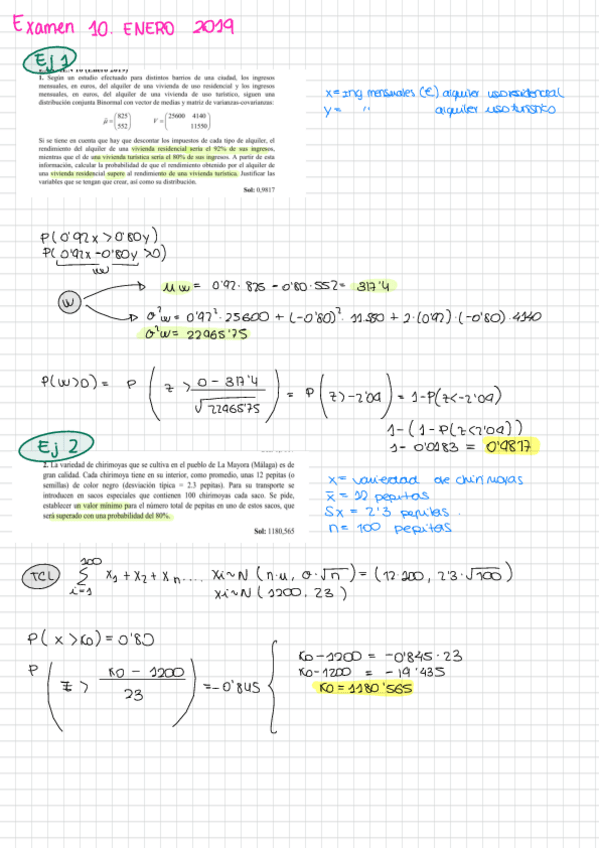 Examen 10. ENERO 2019
Ej 1
1. Según un estudio efectuado para distintos barrios de una ciudad, los ingresos
mensuales, en euros, del alquiler de una vivienda de uso residencial y los ingresos
mensuales, en euros, del alquiler de una vivienda de uso turístico, siguen una
distribución conjunta Binormal con vector de medias y matriz de varianzas-covarianzas:
μ̄ = (825 552) V = (25600 4140 11550)
Si se tiene en cuenta que hay que descontar los impuestos de cada tipo de alquiler, el
rendimiento del alquiler de una vivienda residencial sería el 92% de sus ingresos,
mientras que el de una vivienda turística sería el 80% de sus ingresos. A partir de esta
información, calcular la probabilidad de que el rendimiento obtenido por el alquiler de
una vivienda residencial supere al rendimiento de una vivienda turística. Justificar las
variables que se tengan que crear, así como su distribución.
Sol: 0,9817
x = Ing mensuales (€) alquiler uso residencial
y = " alquiler uso turístico
P(0'92x > 0'80y)
P(0'92x - 0'80y > 0)
w
W
μw = 0'92 · 825 - 0'80 · 552 = 317'4
σ²w = 0'92² · 25600 + (-0'80)² · 11550 + 2 · (0'92) · (-0'80) · 4140
σ²w = 22965'75
P(w>0) = P ( z > 0 - 317'4 / √22965'75 ) = P ( z > -2'09 ) = 1 - P(z < -2'09)
1 - (1 - P(z < 2'09))
1 - 0'0183 = 0'9817
Ej 2
2. La variedad de chirimoyas que se cultiva en el pueblo de La Mayora (Málaga) es de
gran calidad. Cada chirimoya tiene en su interior, como promedio, unas 12 pepitas (o
semillas) de color negro (desviación típica = 2.3 pepitas). Para su transporte se
introducen en sacos especiales que contienen 100 chirimoyas cada saco. Se pide,
establecer un valor mínimo para el número total de pepitas en uno de estos sacos, que
será superado con una probabilidad del 80%.
Sol: 1180,565
x = variedad de chirimoyas
x̄ = 12 pepitas
Sx = 2'3 pepitas.
n = 100 pepitas
TCL 100 Σ i=1 x1 + x2 + xn .... xi ~ N (n · u, σ · √n) = (12·100, 2'3 · √100)
xi ~ N (1200, 23)
P( x > K0) = 0'80
P ( z > K0 - 1200 / 23 ) = -0'845
K0 - 1200 = -0'845 · 23
K0 - 1200 = -19'435
K0 = 1180'565